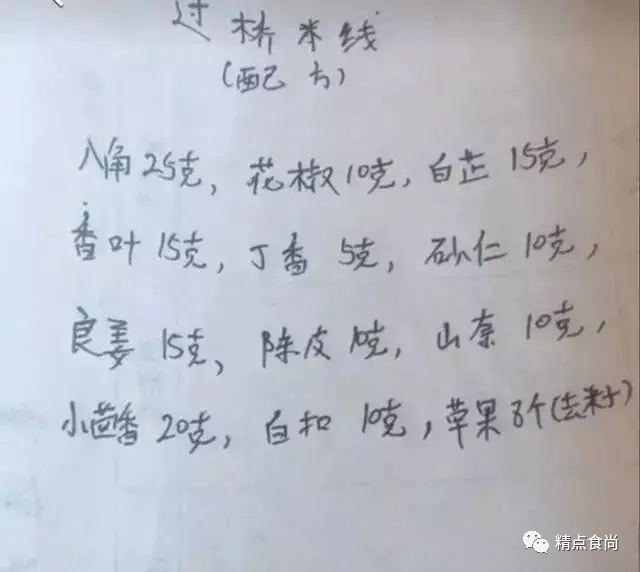 过桥米线
(配方)
八角25克，花椒10克，白芷15克，
香叶15克，丁香5克，砂仁10克，
良姜15克，陈皮10克，山奈10克，
小茴香20克，白扣10克，草果8个(去籽)
精点食尚